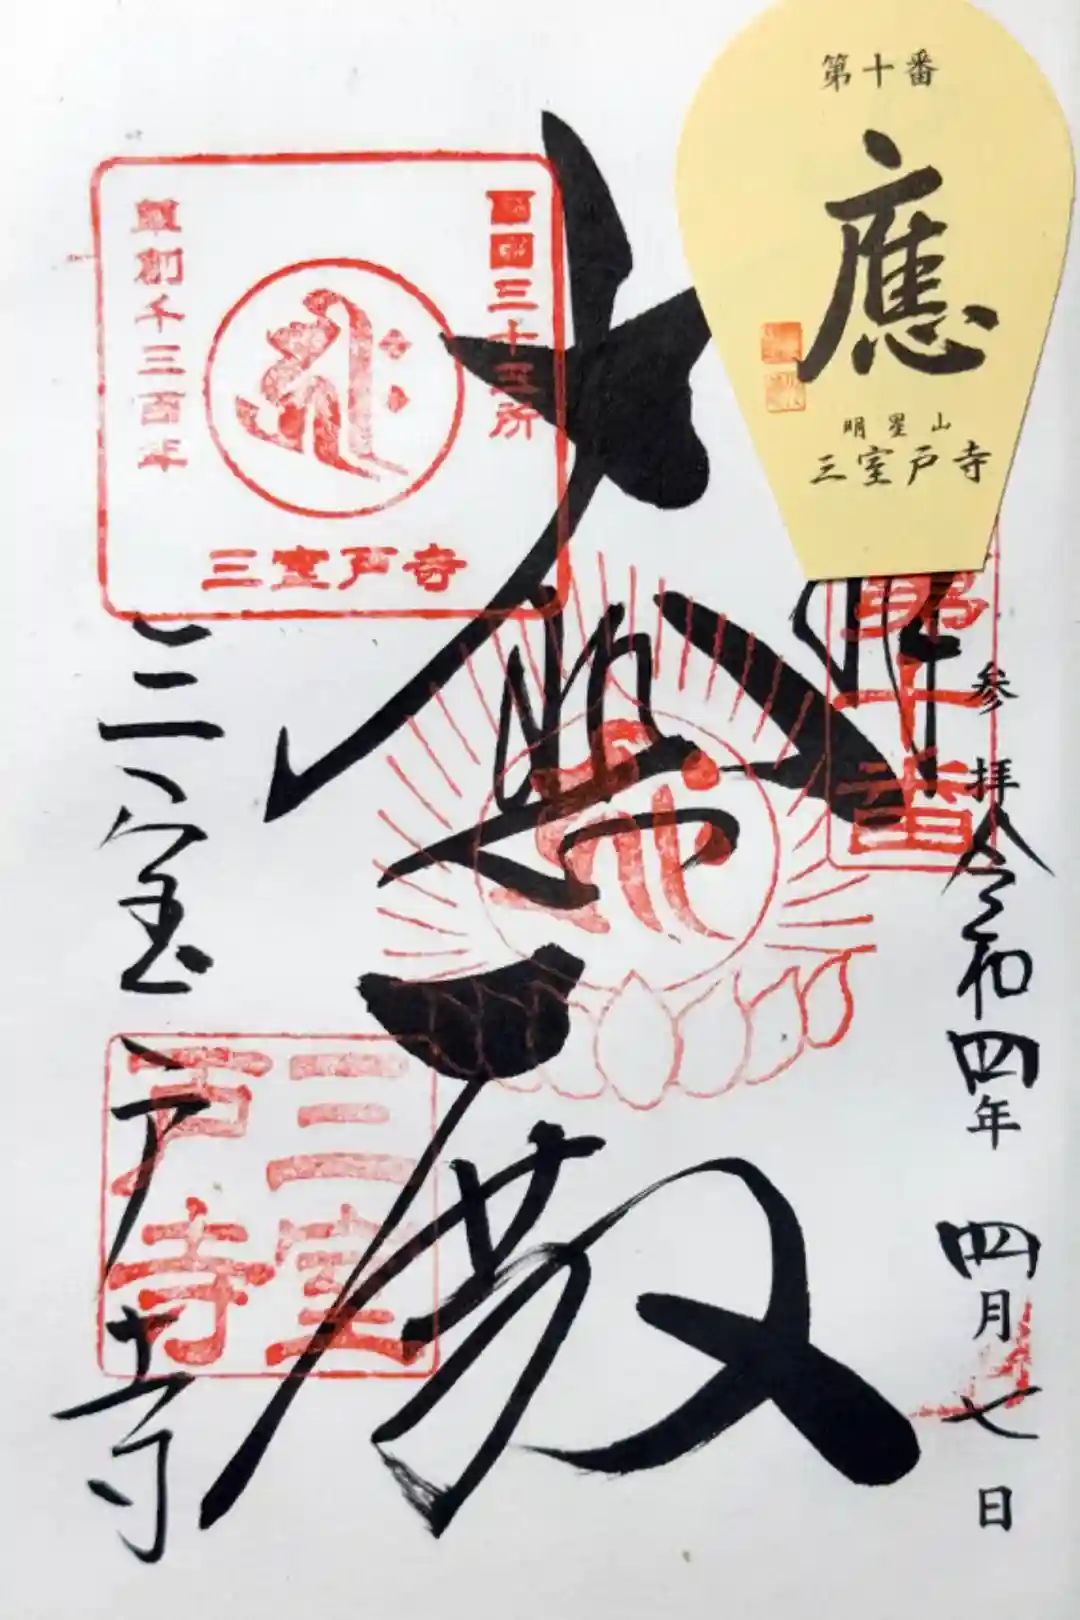 第十番
應
明星山
三室戸寺
西国三十三所
草創千三百年
三室戸寺
第十番
奉拝
令和四年四月七日
大悲殿
三室戸寺
三室戸寺